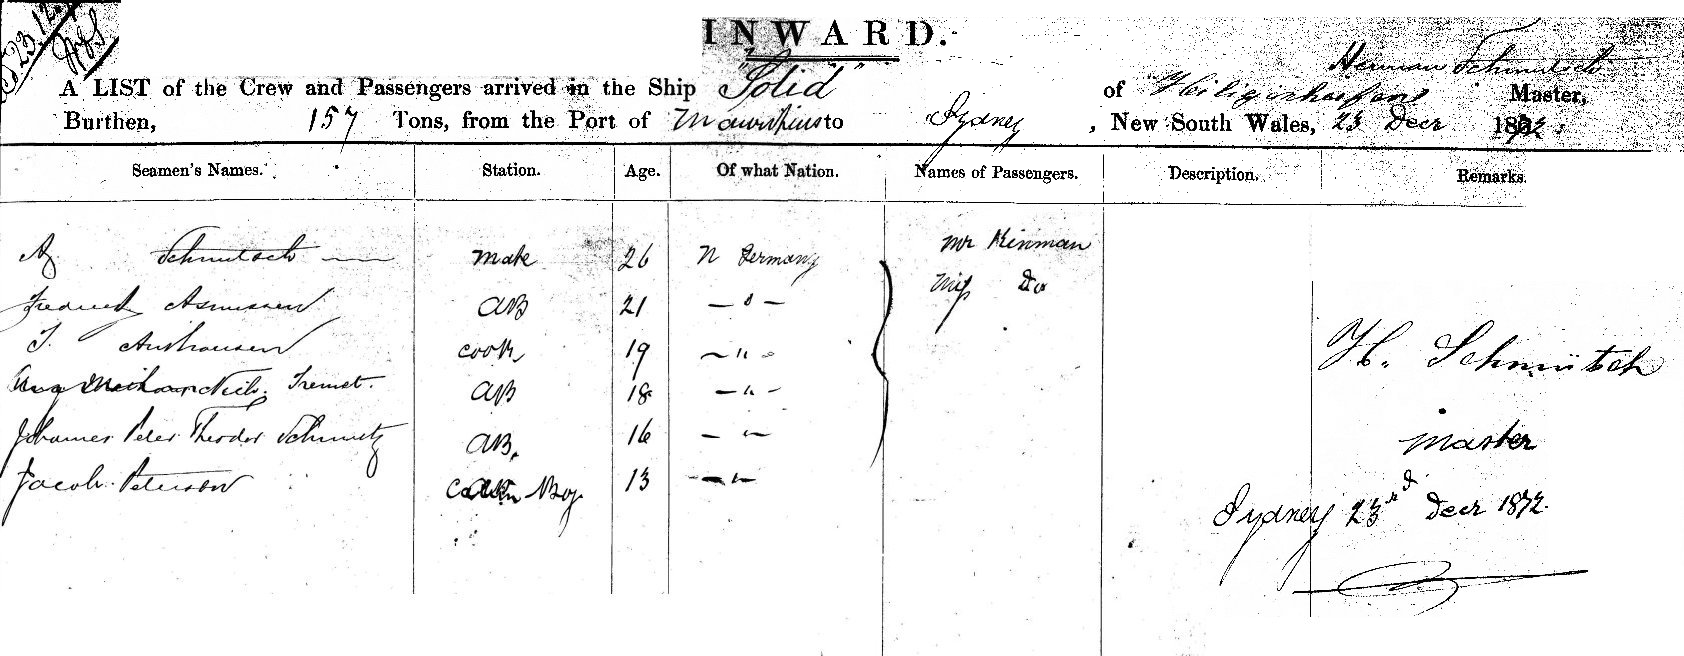 23.12.
INWARD.
A LIST of the Crew and Passengers arrived in the Ship "Solid" of Heiligenhafen Herman Schmütsch Master,
Burthen, 157 Tons, from the Port of Mauritius to Sydney, New South Wales, 23 Decr 1872.
Seamen's Names. Station. Age. Of what Nation. Names of Passengers. Description. Remarks.
Schmutsch mate 26 N Germany Mr Kinman
Miss Do
Frederick Asmussen AB 21 — " —
J. cook 19 — " —
Tremet. AB 18 — " —
H. Schmütsch
Johannes Peter Theodor Schmutz AB. 16 — " —
master
Jacob Peterson Cabin Boy 13 — " —
Sydney 23rd Decr 1872.